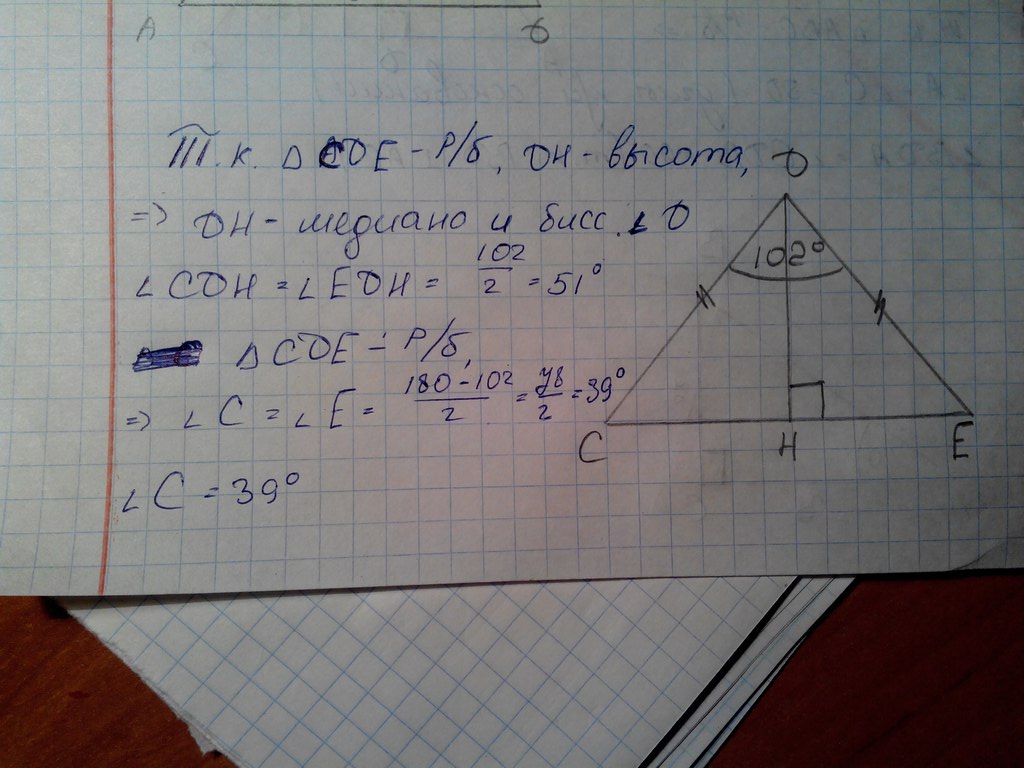 A D
Т.к. △ CDE - р/б, DH - высота,
=> DH - медиано и бисс. ∠ D
∠ CDH = ∠ EDH = 102/2 = 51°
△ CDE - р/б,
=> ∠ C = ∠ E = 180-102/2 = 78/2 = 39°
∠ C = 39°
D
102°
C H E